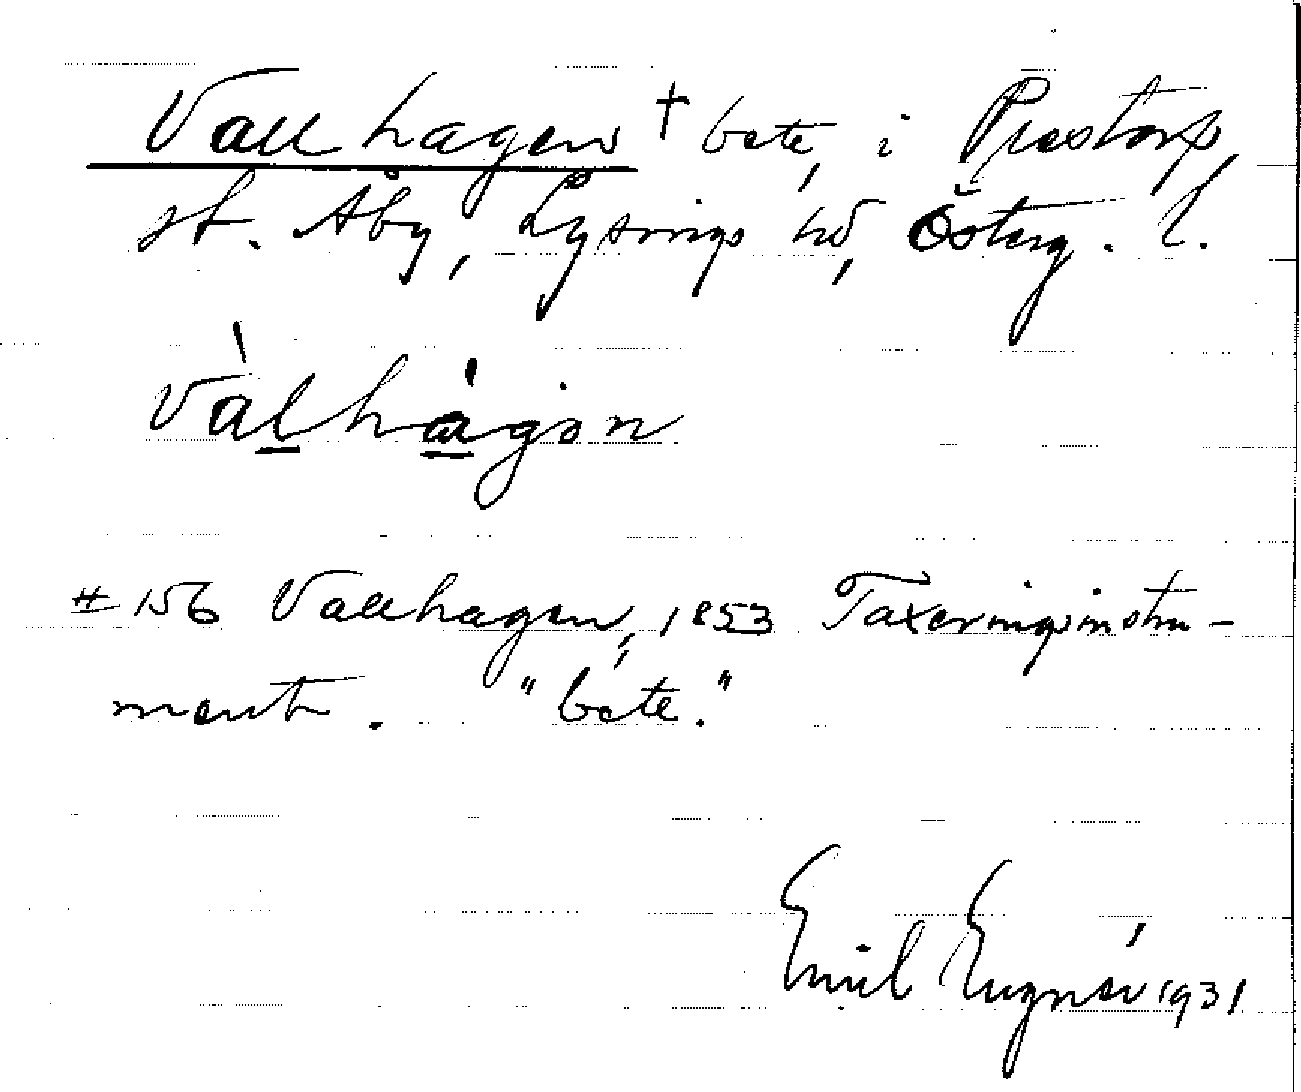 Vallhagen † bete, i Prästorp,
st. Åby, Lysings hd, Österg. l.
vàlhágən
# 156 Vallhagen, 1853 Taxeringsinstru-
ment. "bete."
Emil Eugnér, 1931